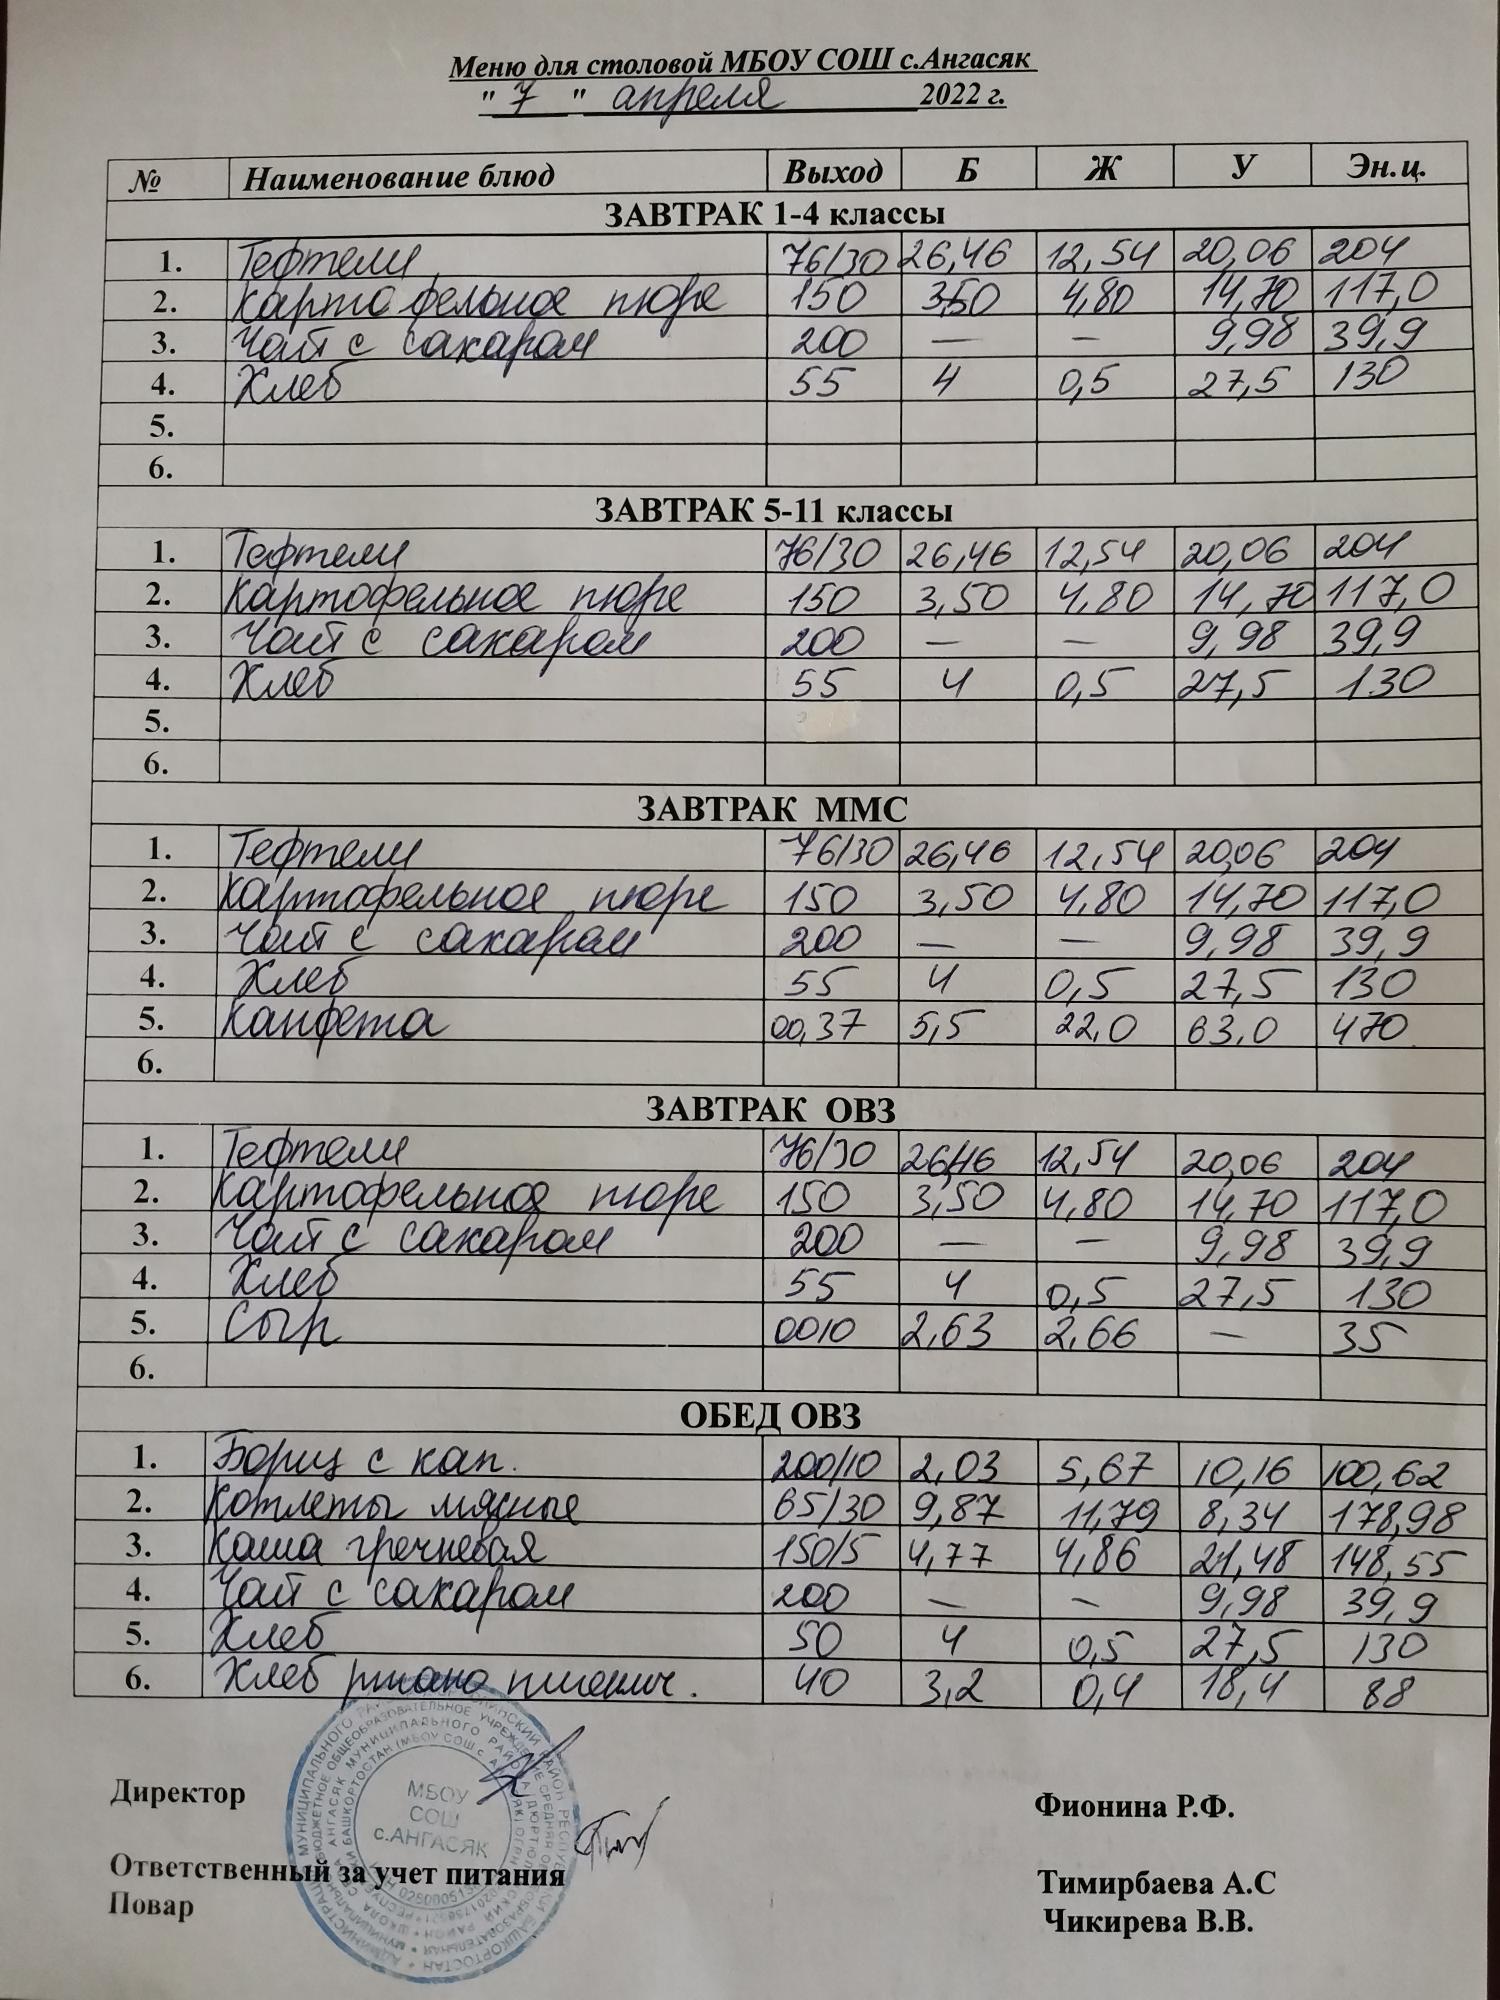 Меню для столовой МБОУ СОШ с.Ангасяк
" 7 " апреля 2022 г.
№ Наименование блюд Выход Б Ж У Эн.ц.
ЗАВТРАК 1-4 классы
1. Тефтели 76/30 26,46 12,54 20,06 204
2. Картофельное пюре 150 3,50 4,80 14,70 117,0
3. Чай с сахаром 200 — — 9,98 39,9
4. Хлеб 55 4 0,5 27,5 130
5.
6.
ЗАВТРАК 5-11 классы
1. Тефтели 76/30 26,46 12,54 20,06 204
2. Картофельное пюре 150 3,50 4,80 14,70 117,0
3. Чай с сахаром 200 — — 9,98 39,9
4. Хлеб 55 4 0,5 27,5 130
5.
6.
ЗАВТРАК ММС
1. Тефтели 76/30 26,46 12,54 20,06 204
2. Картофельное пюре 150 3,50 4,80 14,70 117,0
3. Чай с сахаром 200 — — 9,98 39,9
4. Хлеб 55 4 0,5 27,5 130
5. Канфета 00,37 5,5 22,0 63,0 470
6.
ЗАВТРАК ОВЗ
1. Тефтели 76/30 26,46 12,54 20,06 204
2. Картофельное пюре 150 3,50 4,80 14,70 117,0
3. Чай с сахаром 200 — — 9,98 39,9
4. Хлеб 55 4 0,5 27,5 130
5. Сыр 0010 2,63 2,66 — 35
6.
ОБЕД ОВЗ
1. Борщ с кап. 200/10 2,03 5,67 10,16 100,62
2. Котлеты мясные 65/30 9,87 11,79 8,34 178,98
3. Каша гречневая 150/5 4,77 4,86 21,48 148,55
4. Чай с сахаром 200 — — 9,98 39,9
5. Хлеб 50 4 0,5 27,5 130
6. Хлеб ржано пшенич. 40 3,2 0,4 18,4 88
Директор Фионина Р.Ф.
МБОУ
СОШ
с.АНГАСЯК
Ответственный за учет питания Тимирбаева А.С
Повар Чикирева В.В.